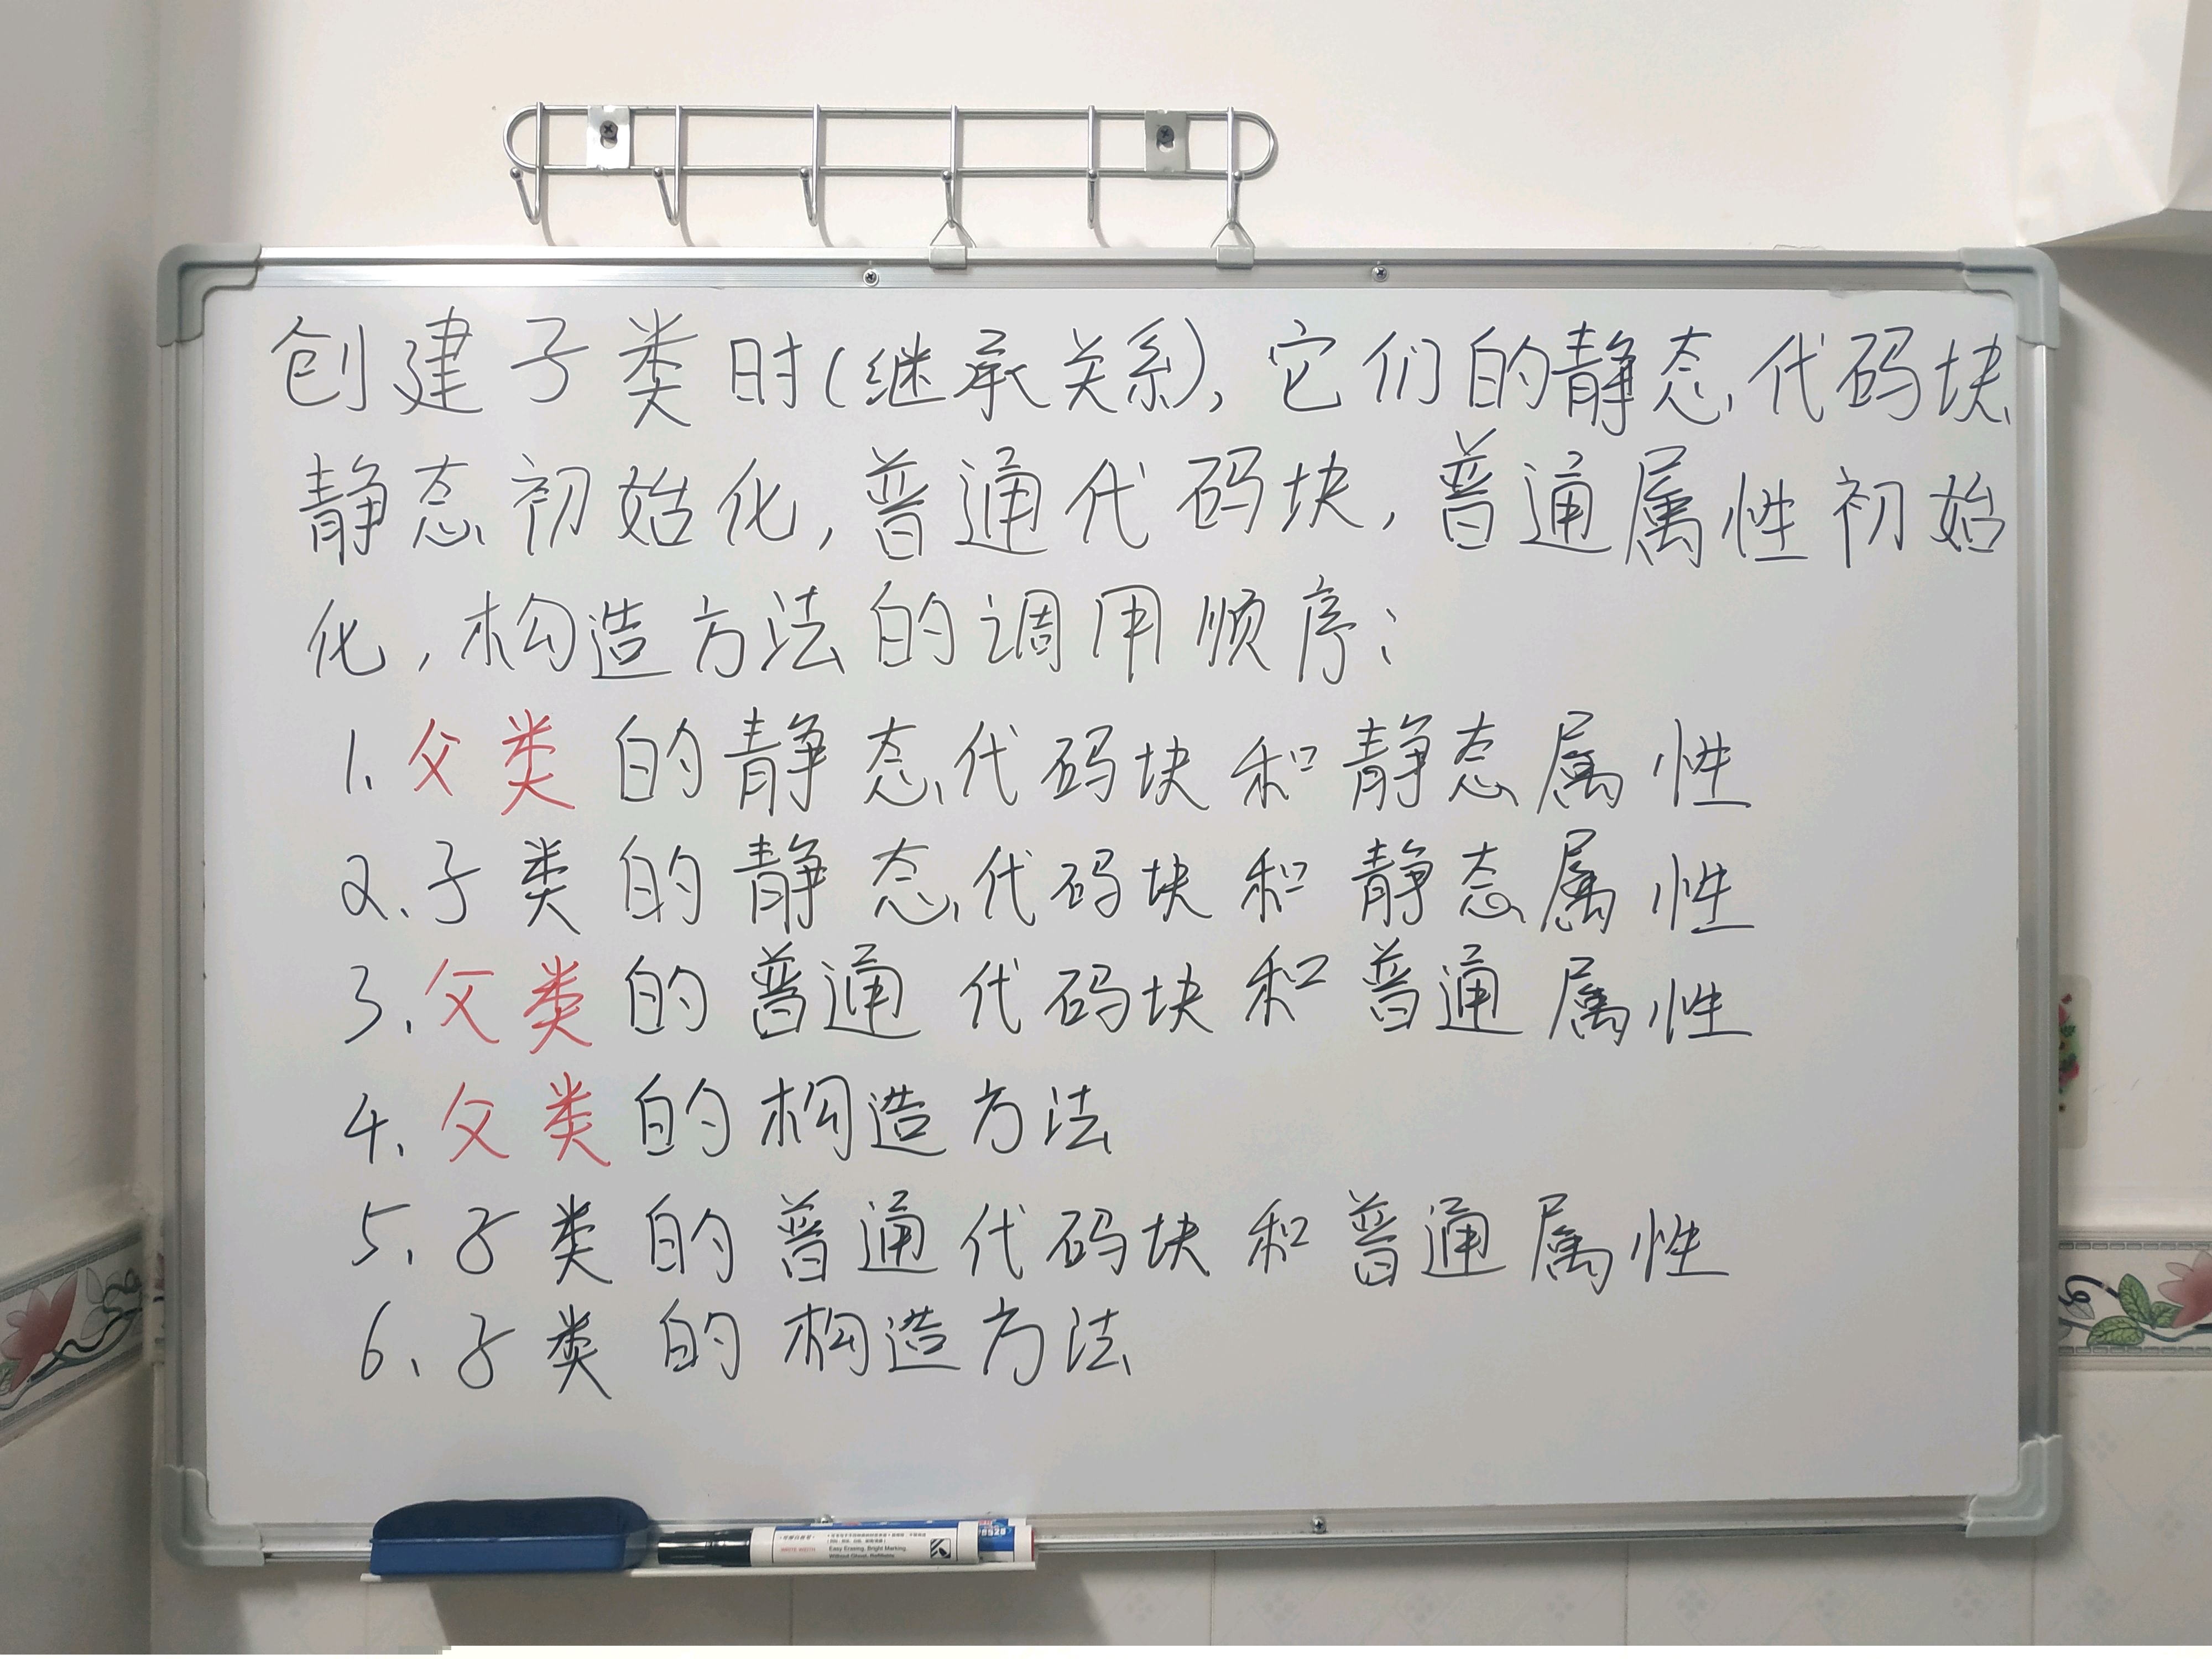 创建子类时(继承关系),它们的静态代码块
静态初始化,普通代码块,普通属性初始
化,构造方法的调用顺序:
1.父类的静态代码块和静态属性
2.子类的静态代码块和静态属性
3.父类的普通代码块和普通属性
4.父类的构造方法
5.子类的普通代码块和普通属性
6.子类的构造方法
Easy Erasing, Bright Marking,